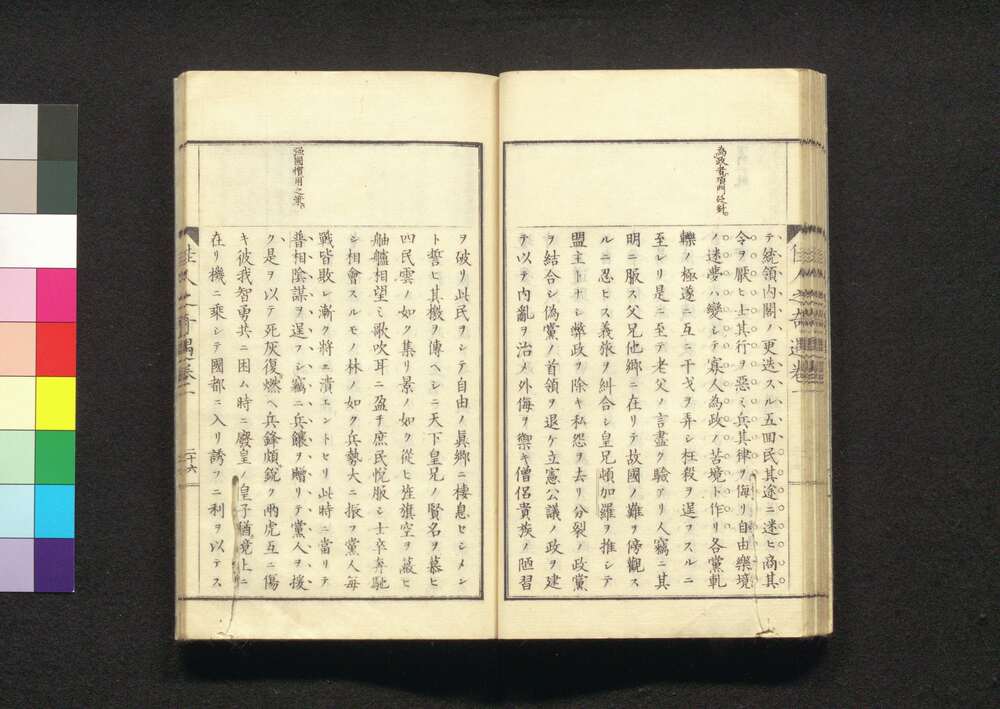 為政者頂門之針
テ統領内閣ノ更迭スル五回民其途ニ迷ヒ商其
令ヲ厭ヒ士其行ヲ惡ミ兵其律ヲ侮リ自由樂境
ノ迷夢ハ變シテ寡人為政ノ苦境ト作リ各黨軋
轢ノ極遂ニ互ニ干戈ヲ弄シ枉殺ヲ逞フスルニ
至レリ是ニ至テ老父ノ言盡ク驗アリ人竊ニ其
明ニ服ス父兄他郷ニ在リテ故國ノ難ヲ傍觀ス
ルニ忍ヒス義旅ヲ糾合シ皇兄頓加羅ヲ推シテ
盟主トナシ弊政ヲ除キ私怨ヲ去リ分裂ノ政黨
ヲ結合シ偽黨ノ首領ヲ退ケ立憲公議ノ政ヲ建
テ以テ内亂ヲ治メ外侮ヲ禦キ僧侶貴族ノ陋習
強國慣用之策
ヲ破リ此民ヲシテ自由ノ眞郷ニ棲息セシメン
ト誓ヒ其檄ヲ傳ヘシニ天下皇兄ノ賢名ヲ慕ヒ
四民雲ノ如ク集リ景ノ如ク從ヒ旌旗空ヲ蔽ヒ
舳艫相望ミ歌吹耳ニ盈チ庶民悅服シ士卒奔馳
シ相會スルモノ林ノ如ク兵勢大ニ振フ黨人毎
戰皆敗レ漸ク將ニ潰エントセリ此時ニ當リテ
普相陰謀ヲ逞フシ竊ニ兵饟ヲ贈リテ黨人ヲ援
ク是ヲ以テ死灰復燃ヘ兵鋒頗銳ク兩虎互ニ傷
キ彼我智勇共ニ困ム時ニ廢皇ノ皇子猶境上ニ
在リ機ニ乘シテ國都ニ入リ誘フニ利ヲ以テス
佳人之奇遇卷二
二十六